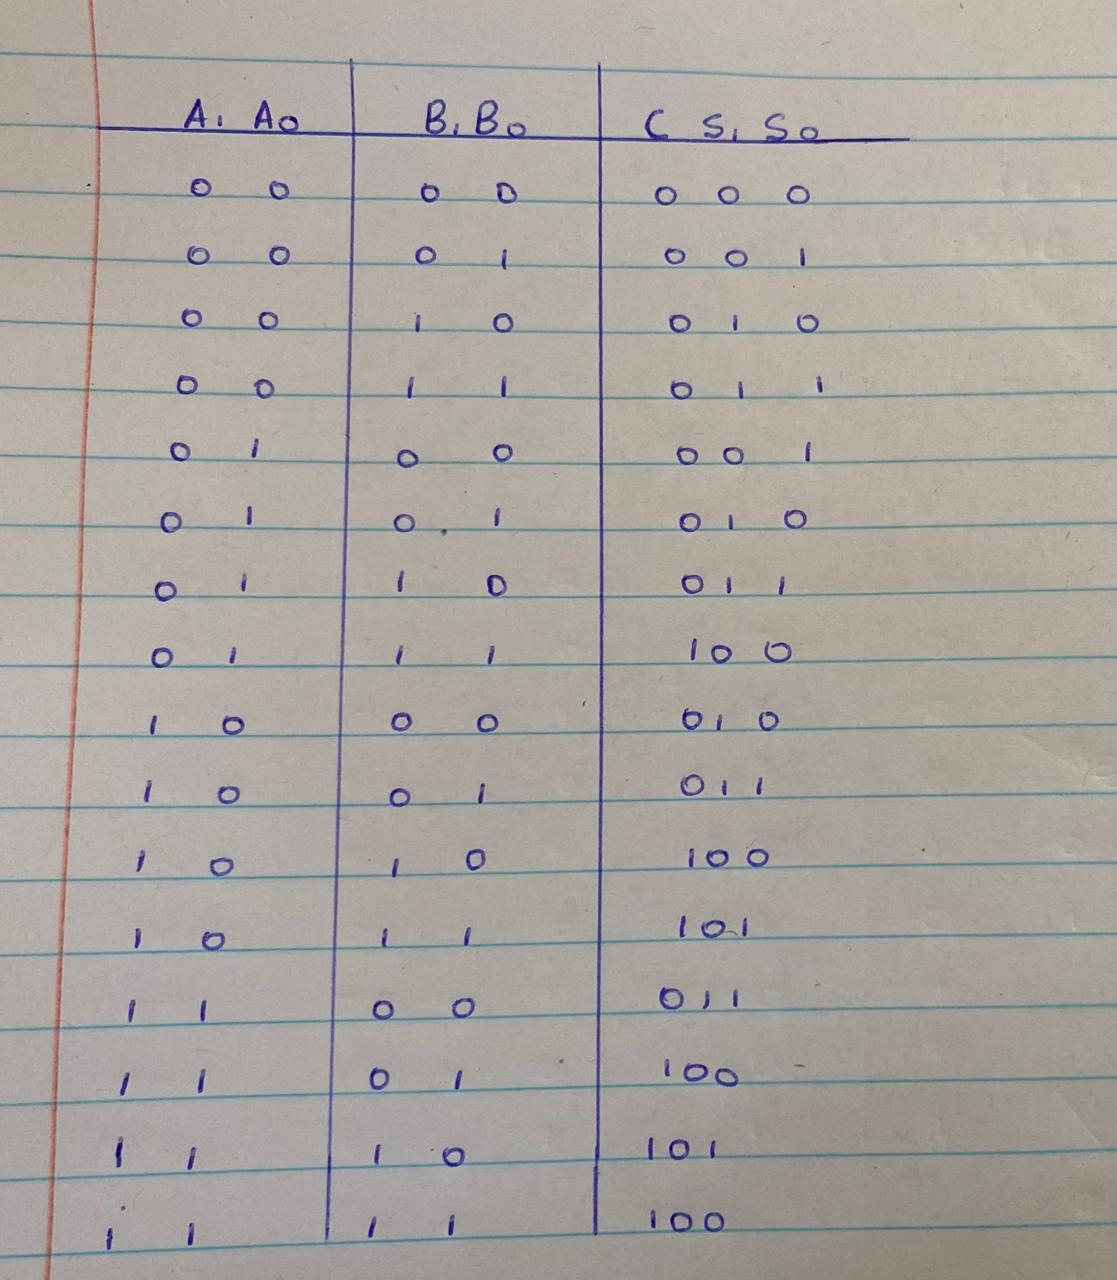 A1 A0 B1 B0 C S1 S0
0 0 0 0 0 0 0
0 0 0 1 0 0 1
0 0 1 0 0 1 0
0 0 1 1 0 1 1
0 1 0 0 0 0 1
0 1 0 1 0 1 0
0 1 1 0 0 1 1
0 1 1 1 1 0 0
1 0 0 0 0 1 0
1 0 0 1 0 1 1
1 0 1 0 1 0 0
1 0 1 1 1 0 1
1 1 0 0 0 1 1
1 1 0 1 1 0 0
1 1 1 0 1 0 1
1 1 1 1 1 0 0